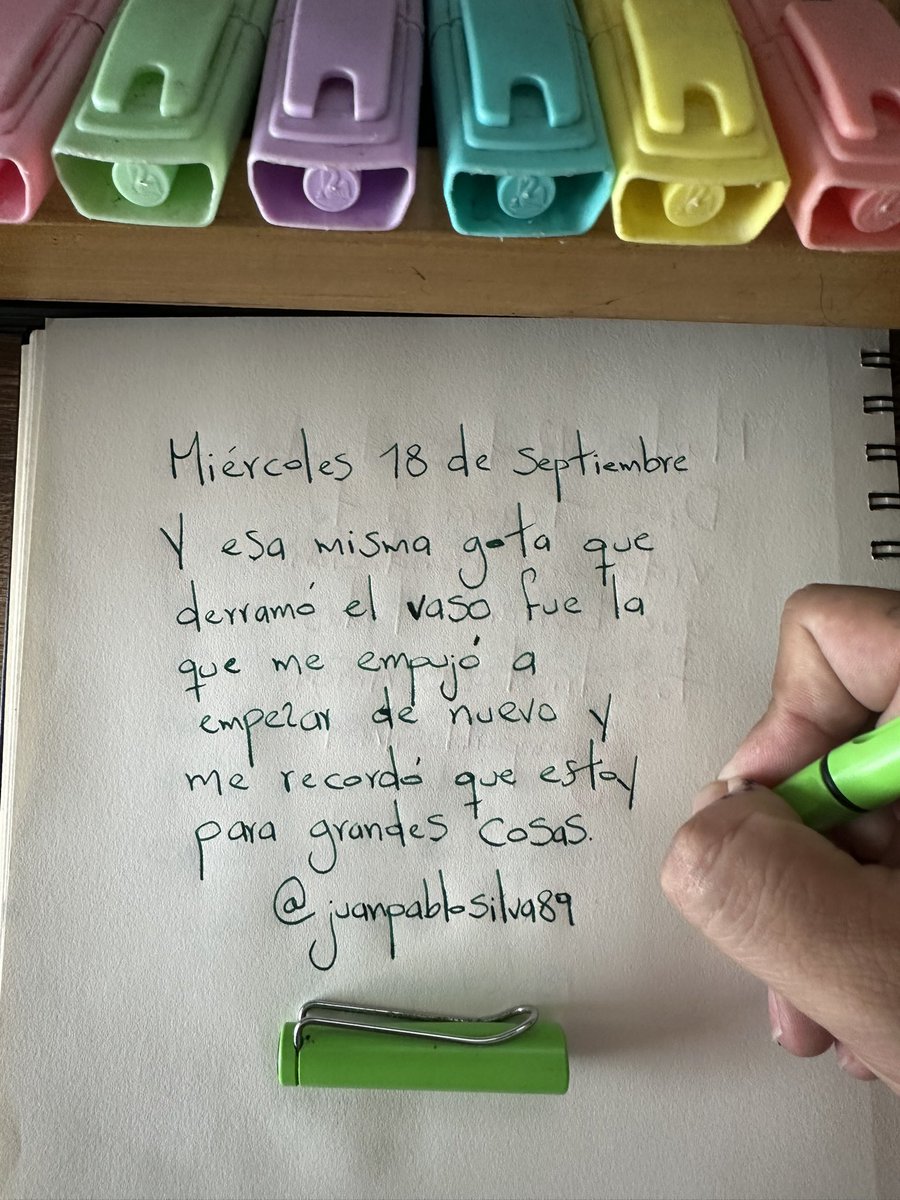 Miércoles 18 de Septiembre
Y esa misma gota que
derramó el vaso fue la
que me empujó a
empezar de nuevo y
me recordó que estoy
para grandes cosas.
@juanpablosilva89